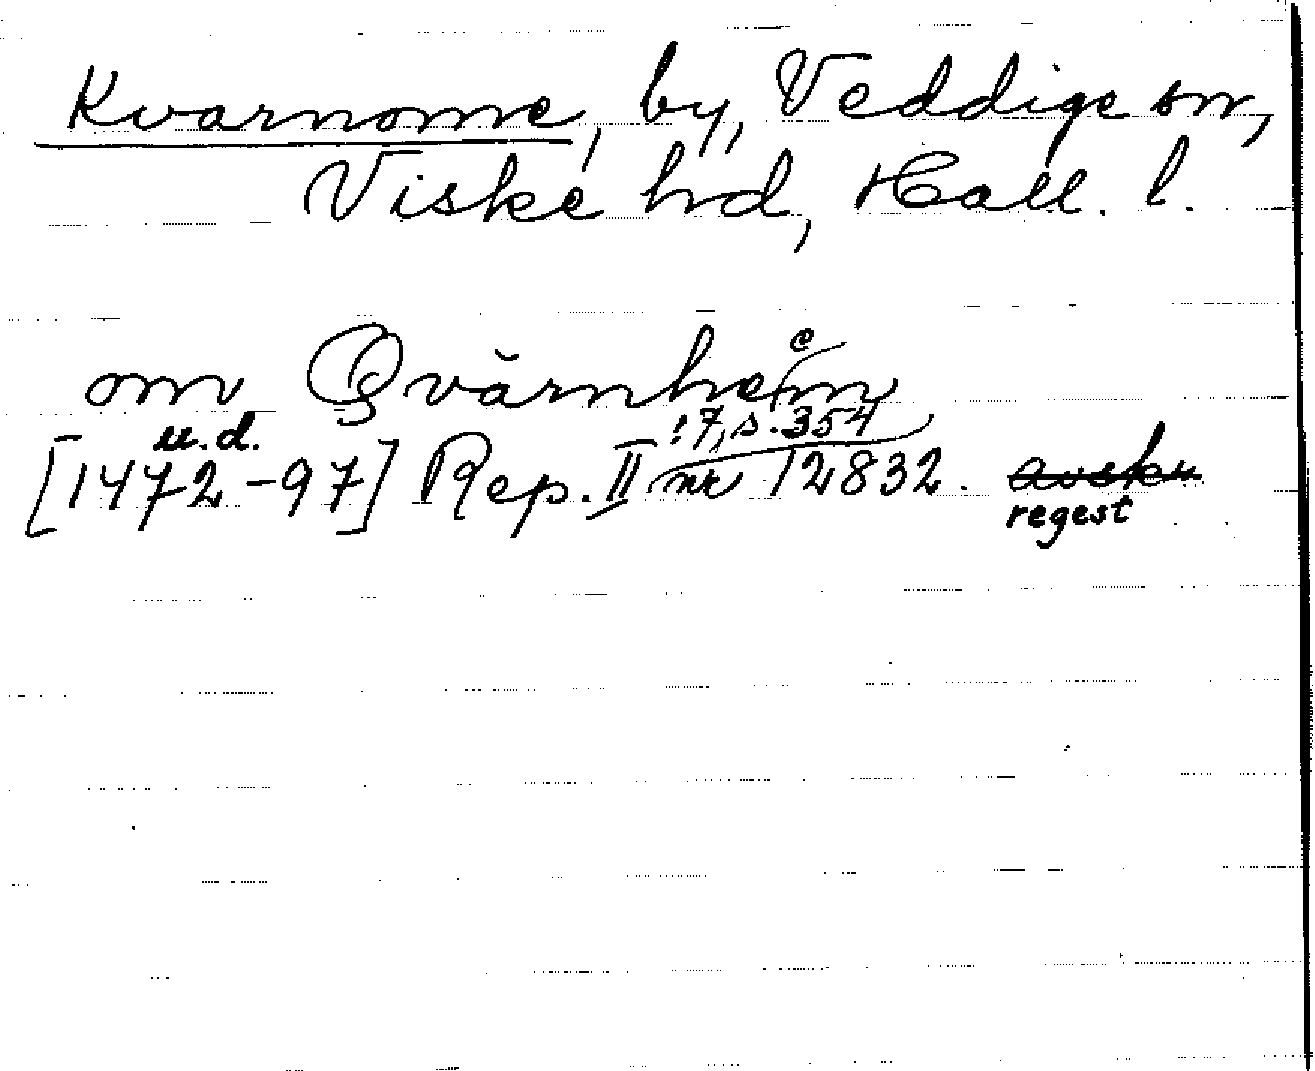 Kvarnome, by, Veddige sn,
Viske hd, Hall. l.
om Qvărnheem
[1472-97] u.d. Rep. II:7, s. 354 nr 12832. avskr
regest